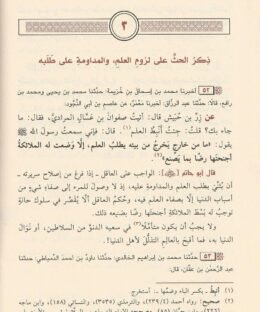 ٣
ذِكرُ الحثِّ على لزومِ العلمِ، والمداومةِ على طلبِه
٥٢ أخبرنا محمد بن إسحاق بن خُزيمة: حدَّثنا محمد بن يحيى ومحمد بن
رافع، قالا: حدَّثنا عبد الرزَّاق: أخبرنا مَعْمَر، عن عاصم بن أبي النَّجود:
عن زِرِّ بن حُبَيش قال: أتيتُ صفوانَ بنَ عسَّال المراديَّ، فقال: ما
جاء بك؟ قلتُ: جئت أُنبِطُ العلمَ(١). قال: فإني سمعتُ رسولَ الله ﷺ
يقول: «ما من خارجٍ يَخرجُ من بيته يطلب العلم، إلَّا وَضعت له الملائكةُ
أجنحتَها رضًا بما يَصنع»(٢).
قال أبو حاتم: الواجب على العاقل ـ إذا فرغ من إصلاح سريرته ـ
أن يُثنِّي بطلب العلم والمداومةِ عليه، إذ لا وصولَ للمرء إلى صفاء شيءٍ من
أسباب الدنيا إلا بصفاء العلم فيه. وحُكمُ العاقل ألَّا يُقصِّر في سلوك حالةٍ
توجِب له بَسْطَ الملائكةِ أجنحتَها رضًا بصنيعه ذلك.
ولا يجبُ أن يكون متأمِّلًا في سعيه الدنوَّ من السلاطين، أو نَوَالَ
الدنيا به، فما أقبحَ بالعالِم التذلُّلَ لأهل الدنيا!
٥٣ حدَّثنا محمد بن إبراهيم الخالدي: حدَّثنا داود بن أحمد الدِّمياطي: حدَّثنا
عبد الرحمٰن بن عفَّان، قال:
(١) أنبِط ـ بكسر الباء وضمِّها ـ: أستخرج.
(٢) صحيح: رواه أحمد (٢٣٩/٤)، والترمذي (٣٥٣٥)، والنسائي (١٥٨)، وابن ماجه